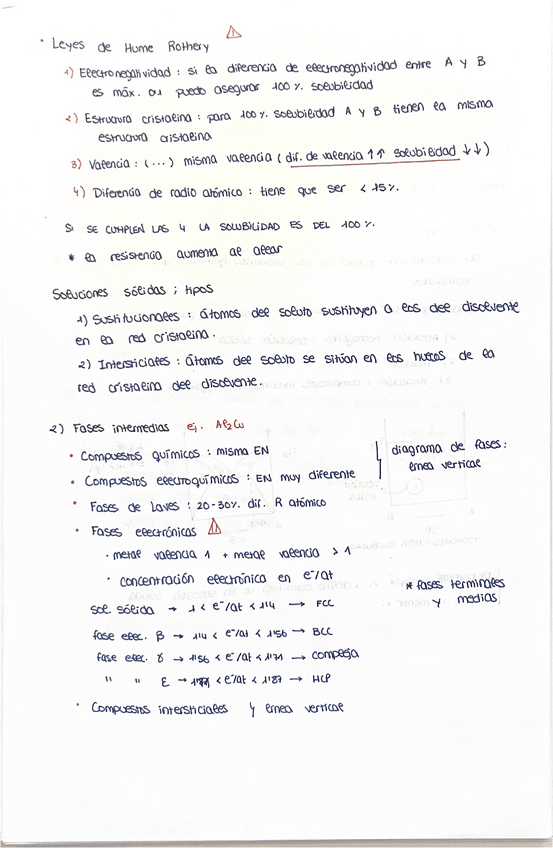 • Leyes de Hume Rothery
1) Electronegatividad : si la diferencia de electronegatividad entre A y B
es máx. 0'1 puedo asegurar 100% solubilidad
2) Estructura cristalina : para 100% solubilidad A y B tienen la misma
estructura cristalina
3) Valencia : (...) misma valencia ( dif. de valencia ↑↑ solubilidad ↓↓)
4) Diferencia de radio atómico : tiene que ser < 15%.
SI SE CUMPLEN LAS 4 LA SOLUBILIDAD ES DEL 100%.
* la resistencia aumenta al alear
Soluciones sólidas ; tipos
1) Sustitucionales : átomos del soluto sustituyen a los del disolvente
en la red cristalina.
2) Intersticiales : átomos del soluto se sitúan en los huecos de la
red cristalina del disolvente.
2) Fases intermedias ej. Al2Cu
• Compuestos químicos : misma EN
• Compuestos electroquímicos : EN muy diferente
diagrama de fases:
línea vertical
• Fases de Laves : 20-30% dif. R atómico
• Fases electrónicas
· metal valencia 1 + metal valencia > 1
· concentración electrónica en e⁻/at
* fases terminales
y medias
sol. sólida → 1 < e⁻/at < 1'4 → FCC
fase elec. β → 1'4 < e⁻/at < 1'56 → BCC
fase elec. γ → 1'56 < e⁻/at < 1'71 → compleja
" " ε → < e⁻/at < 1'87 → HCP
• Compuestos intersticiales y línea vertical